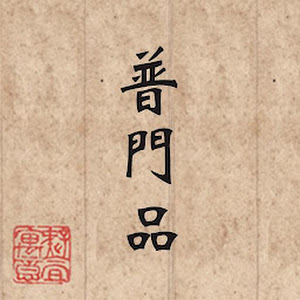 普門品